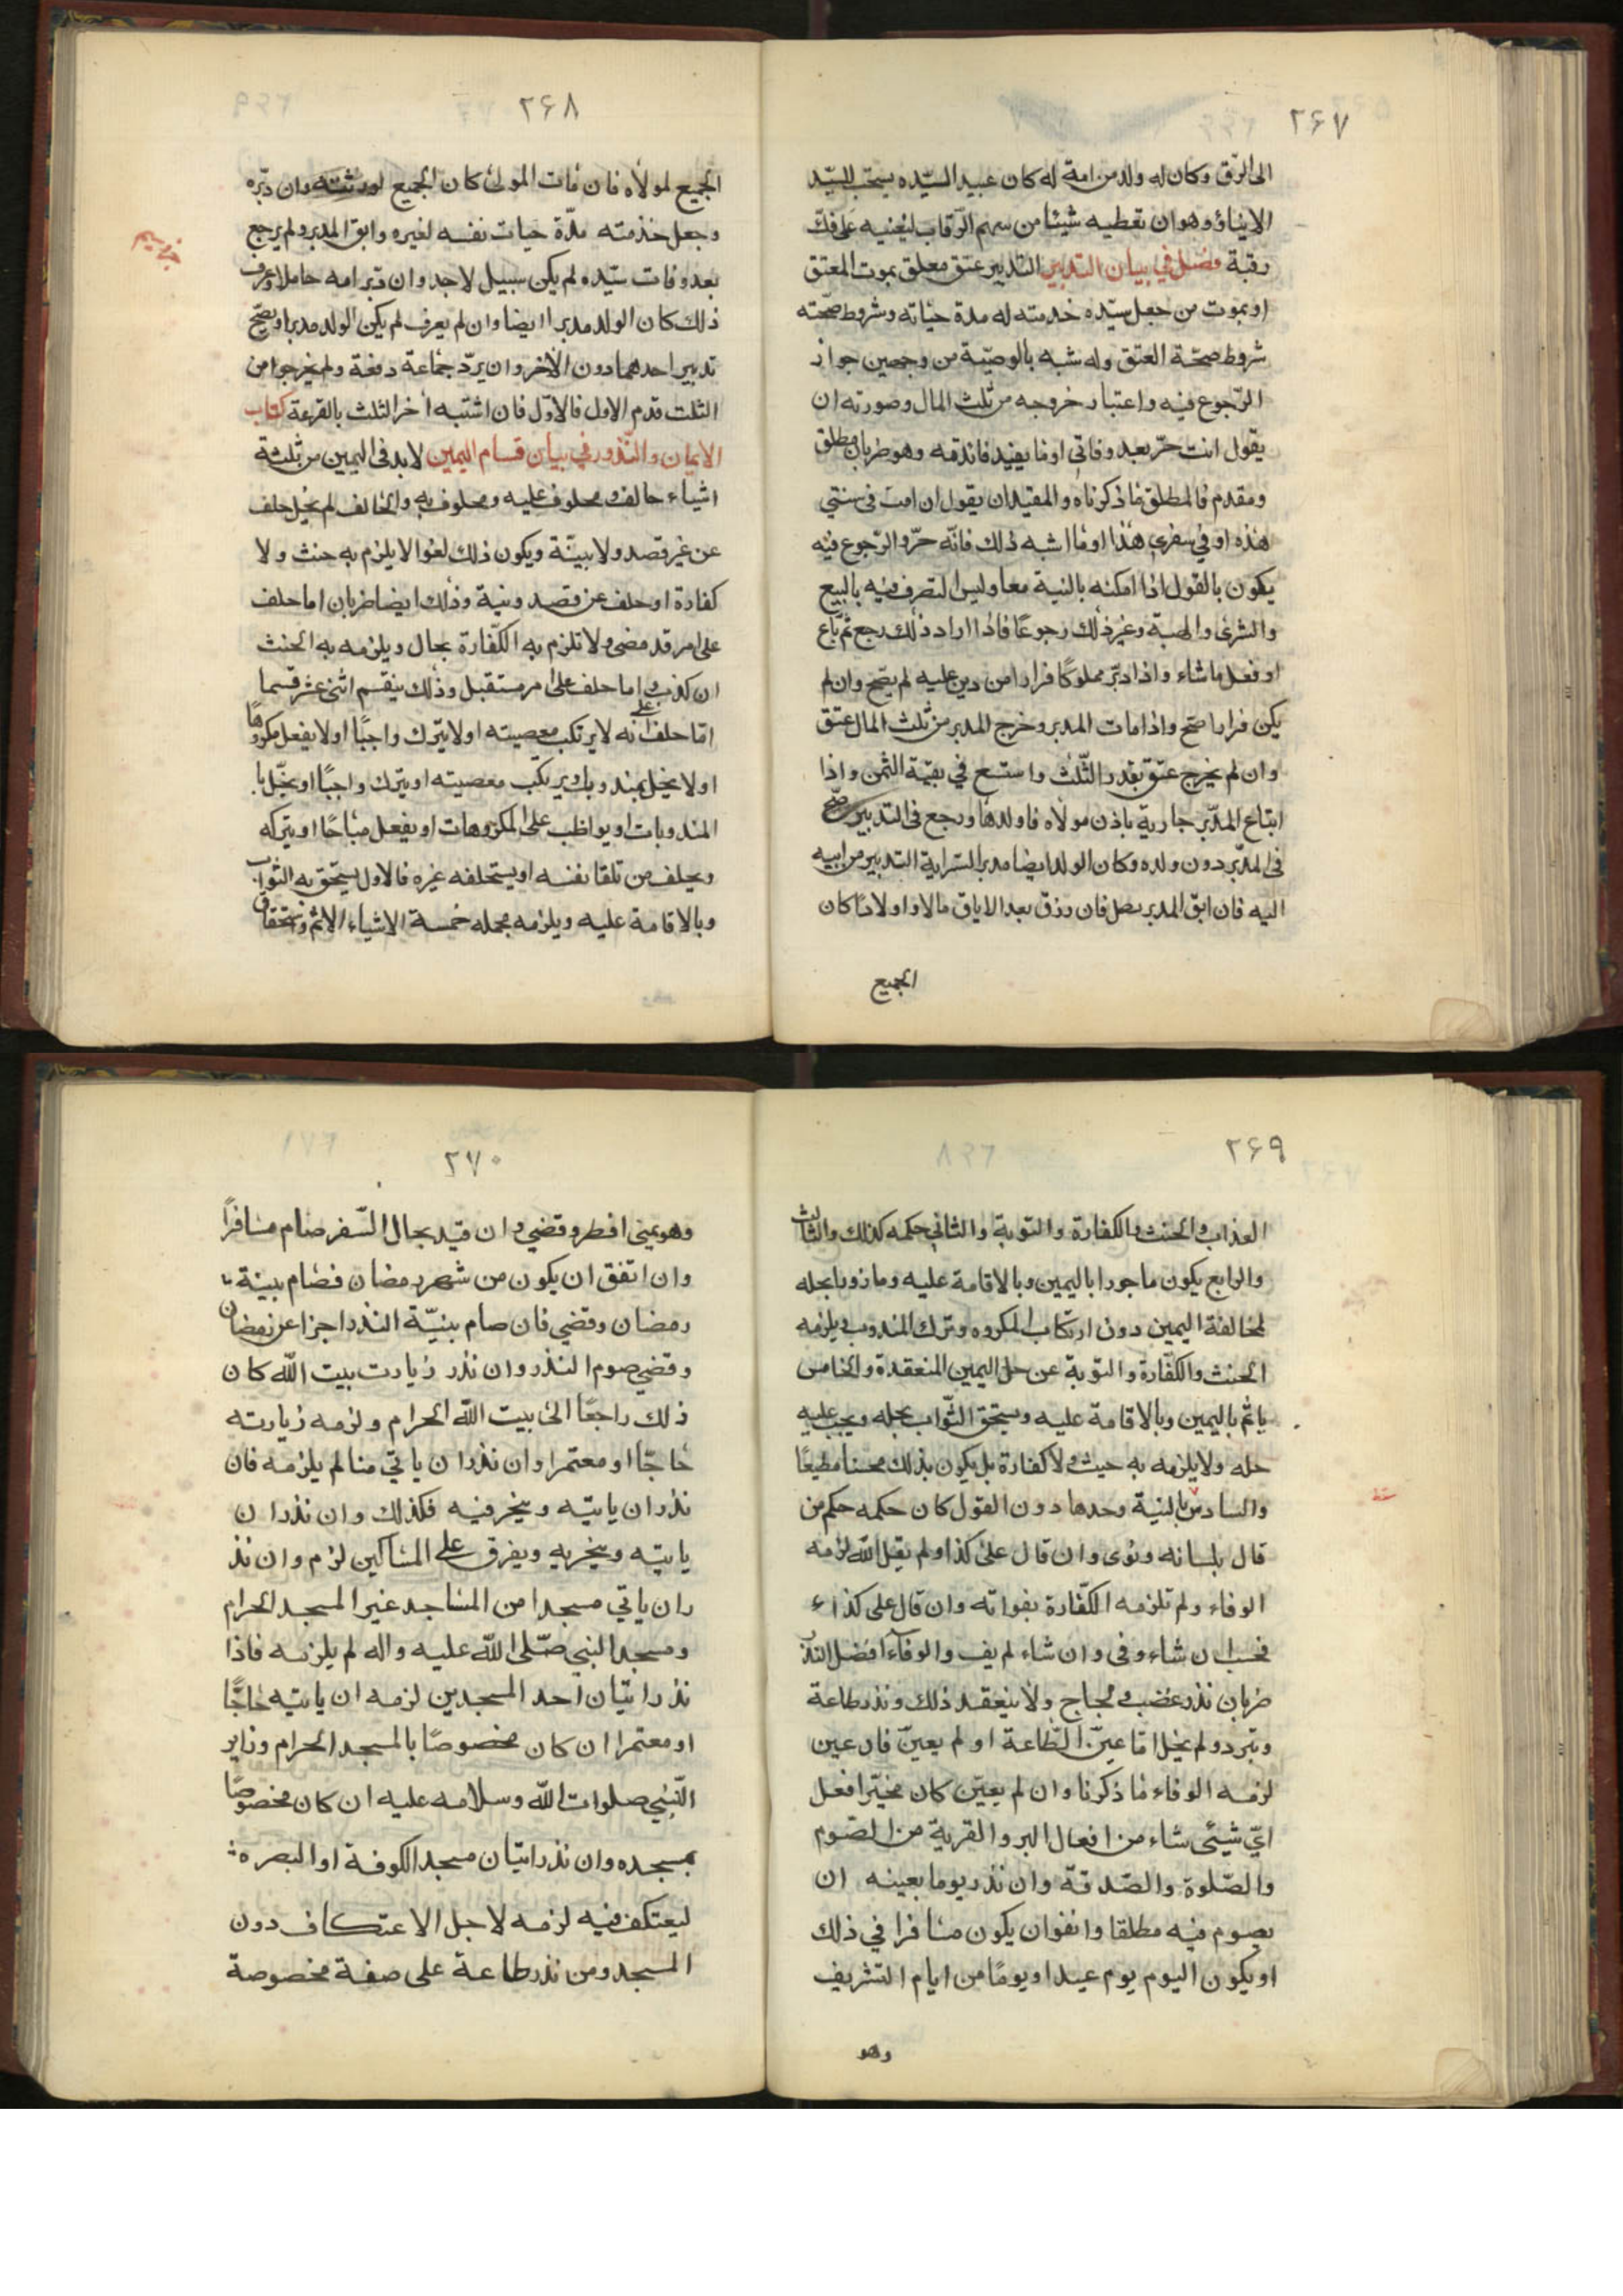 ۲۶۷
الى الرّق وكان له ولد من امة له كان عبيد السيّده يستحب للسيّد
الايتاؤ وهو ان يعطيه شيئا من سهم الرّقاب ليعنيه على فكّ
رقبة فصل في بيان التدبير التدبير عتق معلق بموت المعتق
او بموت من جعل سيّده خدمته له مدة حياته وشروط صحّته
شروط صحّة العتق وله شبه بالوصيّة من وجهين جواز
الرّجوع فيه واعتبار خروجه من ثلث المال وصورته ان
يقول انت حرّ بعد وفاتى او ما يفيد فائدته وهو ضربان مطلق
ومقدم فالمطلق ما ذكرناه والمقيد ان يقول ان امت فى سنتي
هذه او في سفرى هذا او ما اشبه ذلك فانّه حرّ والرّجوع فيه
يكون بالقول اذا امكنه بالنية معا وليس التصرف فيه بالبيع
والشرى والهبة وغير ذلك رجوعًا فاذا اراد ذلك رجع ثم باع
او فعل ما شاء واذا دبّر مملوكًا فرارا من دين عليه لم يصّح وان لم
يكن فرارا صح واذا مات المدبر وخرج المدبر من ثلث المال عتق
وان لم يخرج عتق بقدر الثّلث واستسع في بقيّة الثمن واذا
ابتاع المدّبر جارية باذن مولاه فاولدها ورجع فى التدبير صّح
فى المدّبر دون ولده وكان الولد ايضا مدبر السراية التدبير من ابيه
اليه فان ابق المدبر بطل فان رزق بعد الاباق مالا و اولادًا كان
الجميع
۲۶۸
الجميع لمولاه فان مات المولى كان الجميع لورثته وان دبّره
وجعل خدمته مدّة حيات نفسه لغيره وابق المدبر ولم يرجع
بعد وفات سيّده لم يكن سبيل لاحد وان دبر امه حاملا وعرف
ذلك كان الولد مدبرا ايضا وان لم يعرف لم يكن الولد مدبرا ويصّح
تدبير احدهما دون الاخر وان يردّ جماعة دفعة ولم يخرجوا من
الثلث قدم الاول فالاوّل فان اشتبه أخر الثلث بالقرعة كتاب
الايمان والنّذور في بيان قسام اليمين لا بد فى اليمين من ثلثة
اشياء حالف و محلوف عليه و محلوف به والحالف لم يخل حلف
عن غير قصد ولا بيّنة ويكون ذلك لغوا لا يلزم به حنث ولا
كفارة او حلف عن قصد ونية وذلك ايضا ضربان اما حلف
على امر قد مضى ولا تلزم به الكّفارة بحال ويلزمه به الحنث
ان كذب و اما حلف على امر مستقبل وذلك ينقسم اثنى عشر قسما
امّا حلف على انه لا يرتكب معصيته او لا يترك واجبًا او لا يفعل مكروهًا
او لا يخل بمندوبات او يرتكب معصيته او يترك واجبًا او يخّل با
المندوبات او يواظب على المكروهات او يفعل مباحًا او يتركه
ويحلف من تلقا نفسه او يستحلفه غيره فالاول يستحق به الثواب
وبالاقامة عليه ويلزمه بحمله خمسة الاشياء الاثم واستحقاق
۲۶۹
العذاب والحنث والكفارة والتوبة والثانى حكمه كذلك والثالث
والرابع يكون ماجورا باليمين وبالاقامة عليه وما زورا بحله
لمخالفة اليمين دون ارتكاب المكروه وترك المندوب ويلزمه
الحنث والكفّارة والتوبة عن حل اليمين المنعقدة والخامس
ياثم باليمين وبالاقامة عليه ويستحق الثّواب بحله ويجب عليه
حله ولا يلزمه به حيث ولا كفارة بل يكون بذلك محسنا مطيعًا
والسادس بالنية وحدها دون القول كان حكمه حكم من
قال بلسانه ونوى وان قال على كذا ولم يقل الله لزمه
الوفاء ولم تلزمه الكّفارة بفواته وان قال على كذا
فحسب ان شاء وفى وان شاء لم يف والوفاء افضل النذر
ضربان نذر غضب و لجاج ولا ينعقد ذلك ونذر طاعة
وتبرد ولم يخل اما عيّن الطّاعة او لم يعيّن فان عين
لزمه الوفاء ما ذكرنا وان لم يعيّن كان مخيّرا فعل
ايّ شيئى شاء من افعال البر والقربة من الصّوم
والصّلوة والصّدقة وان نذر يوما بعينه ان
يصوم فيه مطلقا واتفوان يكون مسافرا في ذلك
او يكون اليوم يوم عيد او يومًا من ايام التشريف
وهو
۲۷۰
وهو بمنى افطر وقضي وان قيّد بحال السّفر صام مسافرًا
وان اتفق ان يكون من شهر رمضان فصام بنية
رمضان وقضي فان صام بنيّة النذر اجزا عن رمضان
وقضي صوم النذر وان نذر زيارت بيت الله كان
ذلك راجعًا الى بيت الله الحرام ولزمه زيارته
حاجّا او معتمرا وان نذر ان ياتي منا لم يلزمه فان
نذر ان ياتيه وينحر فيه فكذلك وان نذر ان
ياتيه وينحر به ويفرق على المساكين لزم وان نذ
ر ان ياتي مسجدا من المساجد غير المسجد الحرام
ومسجد النبي صّلى الله عليه واله لم يلزمه فاذا
نذر اتيان احد المسجدين لزمه ان ياتيه حاجًّا
او معتمرا ان كان مخصوصًا بالمسجد الحرام وزاير
النّبي صلوات الله وسلامه عليه ان كان مخصوصًا
بمسجده وان نذر اتيان مسجد الكوفة او البصرة
ليعتكف فيه لزمه لاجل الاعتكاف دون
المسجد ومن نذر طاعة على صفة مخصوصة